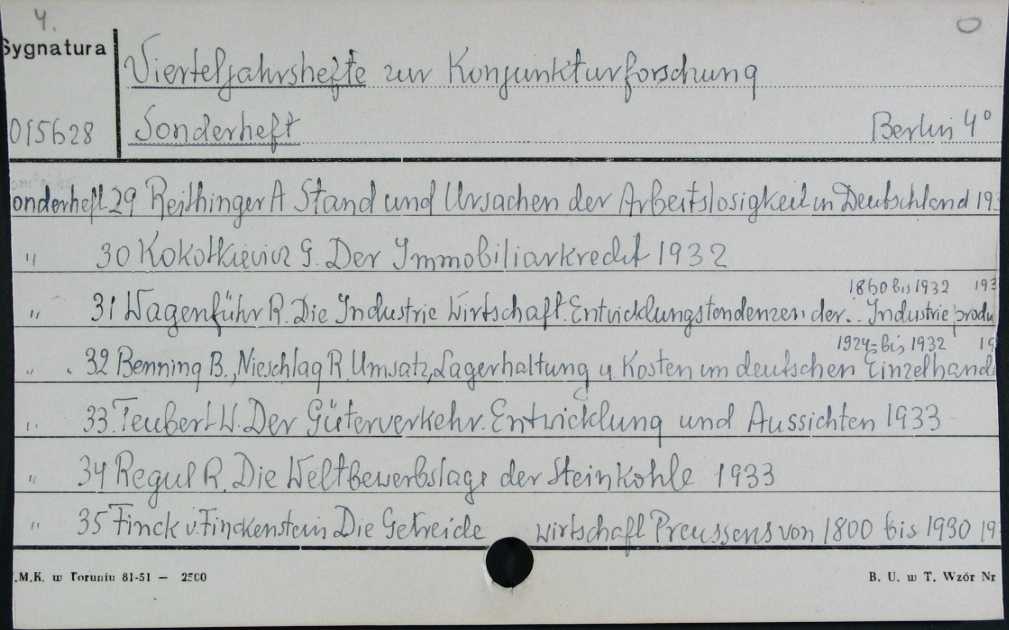 4.
Sygnatura
Vierteljahrshefte zur Konjunkturforschung
015628 Sonderheft Berlin 4°
onderheft 29 Reithinger A Stand und Ursachen der Arbeitslosigkeit in Deutschland 193
" 30 Kokotkiewicz G. Der Immobiliarkredit 1932
1860 bis 1932 193
" 31 Wagenführ R. Die Industrie Wirtschaft. Entwicklungstendenzen der.. Industrieprodu
1924 bis 1932 19
" 32 Benning B., Nieschlag R. Umsatz, Lagerhaltung u Kosten im deutschen Einzelhand
" 33. Teubert W. Der Güterverkehr. Entwicklung und Aussichten 1933
" 34 Regul R. Die Weltbewerbslage der Steinkohle 1933
" 35 Finck v. Finckenstein Die Getreide wirtschaft Preussens von 1800 bis 1930 19
.M.K. w Toruniu 81-51 — 2500 B. U. w T. Wzór Nr